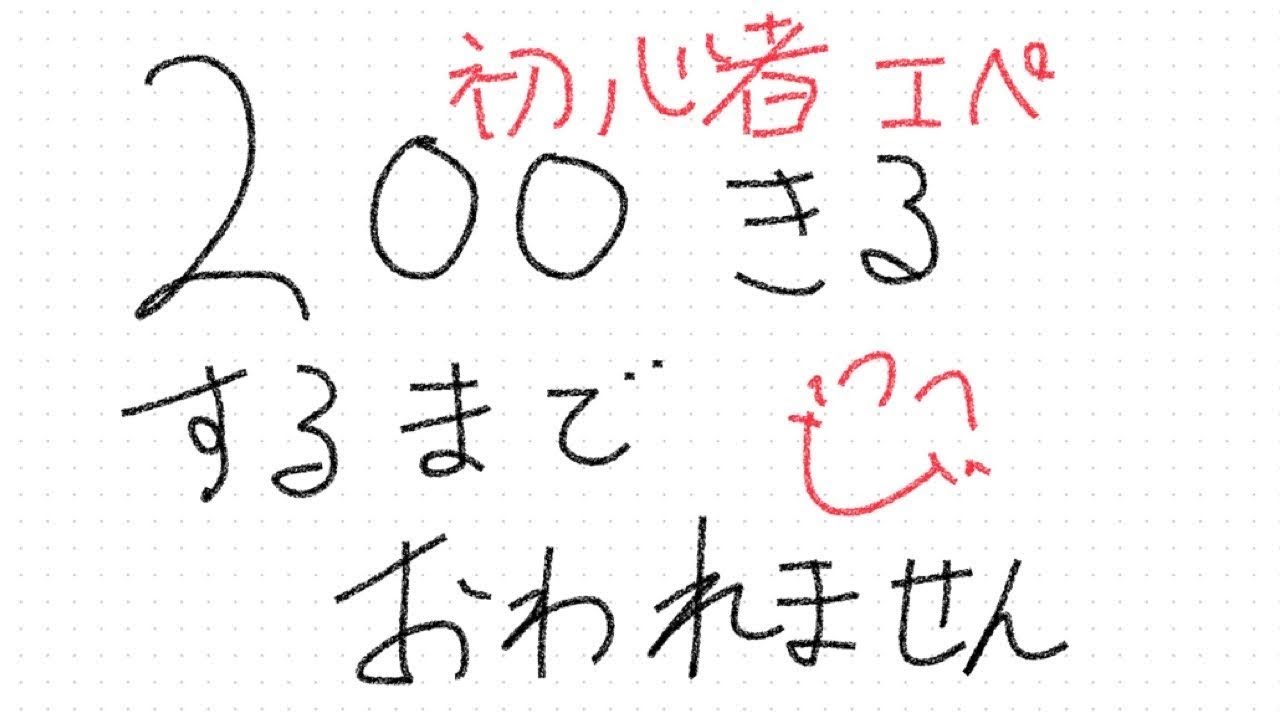 初心者エペ
200きる
するまで
おわれません